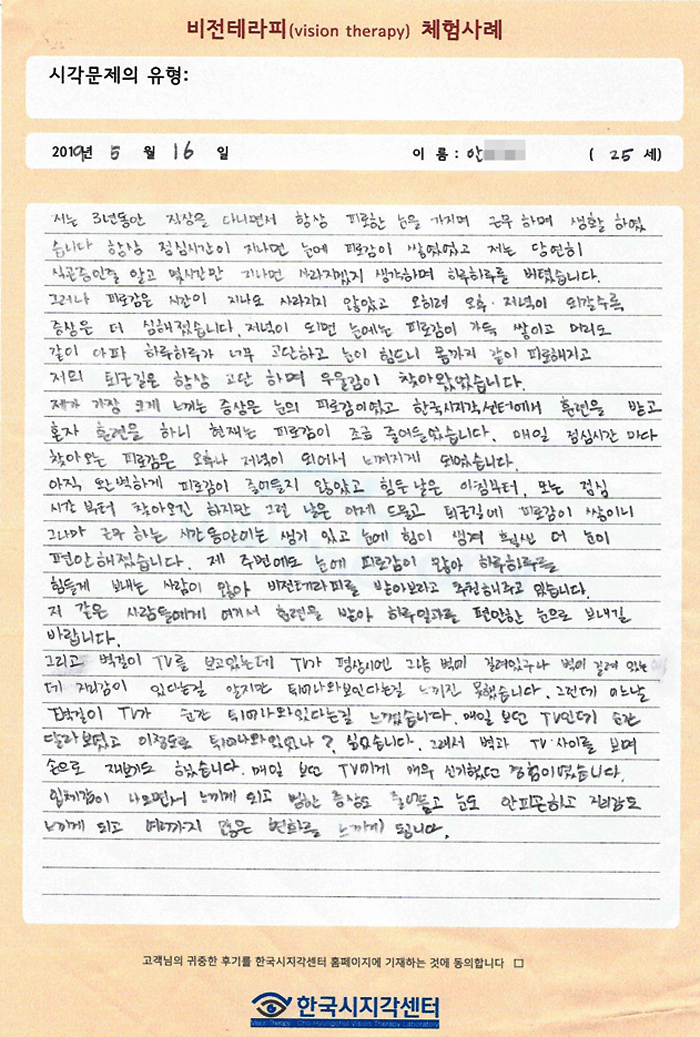 비전테라피(vision therapy) 체험사례
시각문제의 유형:
2019년 5 월 16 일 이 름 : 안 ( 25 세)
저는 3년동안 직장을 다니면서 항상 피로한 눈을 가지며 근무 하며 생활 하였
습니다 항상 점심시간이 지나면 눈에 피로감이 쌓였었고 저는 당연히
식곤증인줄 알고 몇시간만 지나면 사라지겠지 생각하며 하루하루를 버텼습니다.
그러나 피로감은 시간이 지나도 사라지지 않았고 오히려 오후·저녁이 되갈수록
증상은 더 심해졌습니다. 저녁이 되면 눈에는 피로감이 가득 쌓이고 머리도
같이 아파 하루하루가 너무 고단하고 눈이 힘드니 몸까지 같이 피로해지고
저의 퇴근길은 항상 고단 하며 우울감이 찾아왔었습니다.
제가 가장 크게 느끼는 증상은 눈의 피로감이였고 한국시지각센터에서 훈련을 받고
혼자 훈련을 하니 현재는 피로감이 조금 줄어들었습니다. 매일 점심시간 마다
찾아오는 피로감은 오후나 저녁이 되어서 느껴지게 되었습니다.
아직 완벽하게 피로감이 줄어들지 않았고 힘든날은 아침부터, 또는 점심
시간 부터 찾아오긴 하지만 그런 날은 이제 드물고 퇴근길에 피로감이 쌓이니
그나마 근무 하는 시간동안에는 생기 있고 눈에 힘이 생겨 훨씬 더 눈이
편안해졌습니다. 제 주변에도 눈에 피로감이 많아 하루하루를
힘들게 보내는 사람이 많아 비전테라피를 받아보라고 추천해주고 있습니다.
저 같은 사람들에게 여겨서 훈련을 받아 하루일과를 편안한 눈으로 보내길
바랍니다.
그리고 벽걸이 TV를 보고있는데 TV가 평상시엔 그냥 벽에 걸려있구나 벽에 걸려 있는
데 거리감이 있다는걸 알지만 튀어나와보인다는걸 느끼진 못했습니다. 그런데 어느날
벽걸이 TV가 순간 튀어나와있다는걸 느꼈습니다. 매일 보던 TV인데 순간
달라보였고 이정도로 튀어나와있었나? 싶었습니다. 그래서 벽과 TV 사이를 보며
손으로 재보기도 하였습니다. 매일 보던 TV에게 매우 신기했던 경험이였습니다.
입체감이 나오면서 느끼게 되고 멍한 증상도 줄어들고 눈도 안피곤하고 거리감도
느끼게 되고 여러가지 많은 변화를 느끼게 됩니다.
고객님의 귀중한 후기를 한국시지각센터 홈페이지에 기재하는 것에 동의합니다 □
한국시지각센터
Vision Therapy Cho Hyungchul Vision Therapy Laboratory